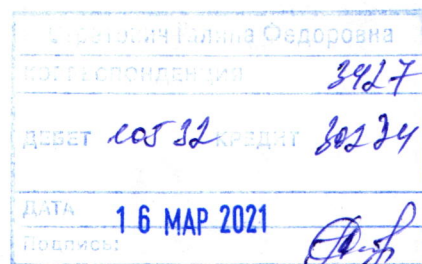 Галина Федоровна
КОРРЕСПОНДЕНЦИЯ 3427
ДЕБЕТ 105 32 КРЕДИТ 302 34
ДАТА 16 МАР 2021
Подпись: